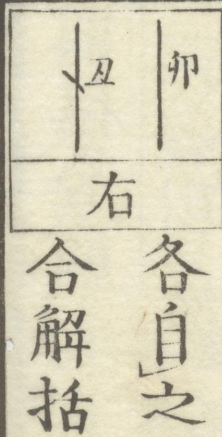 卯
丑
右
各自之
合解括